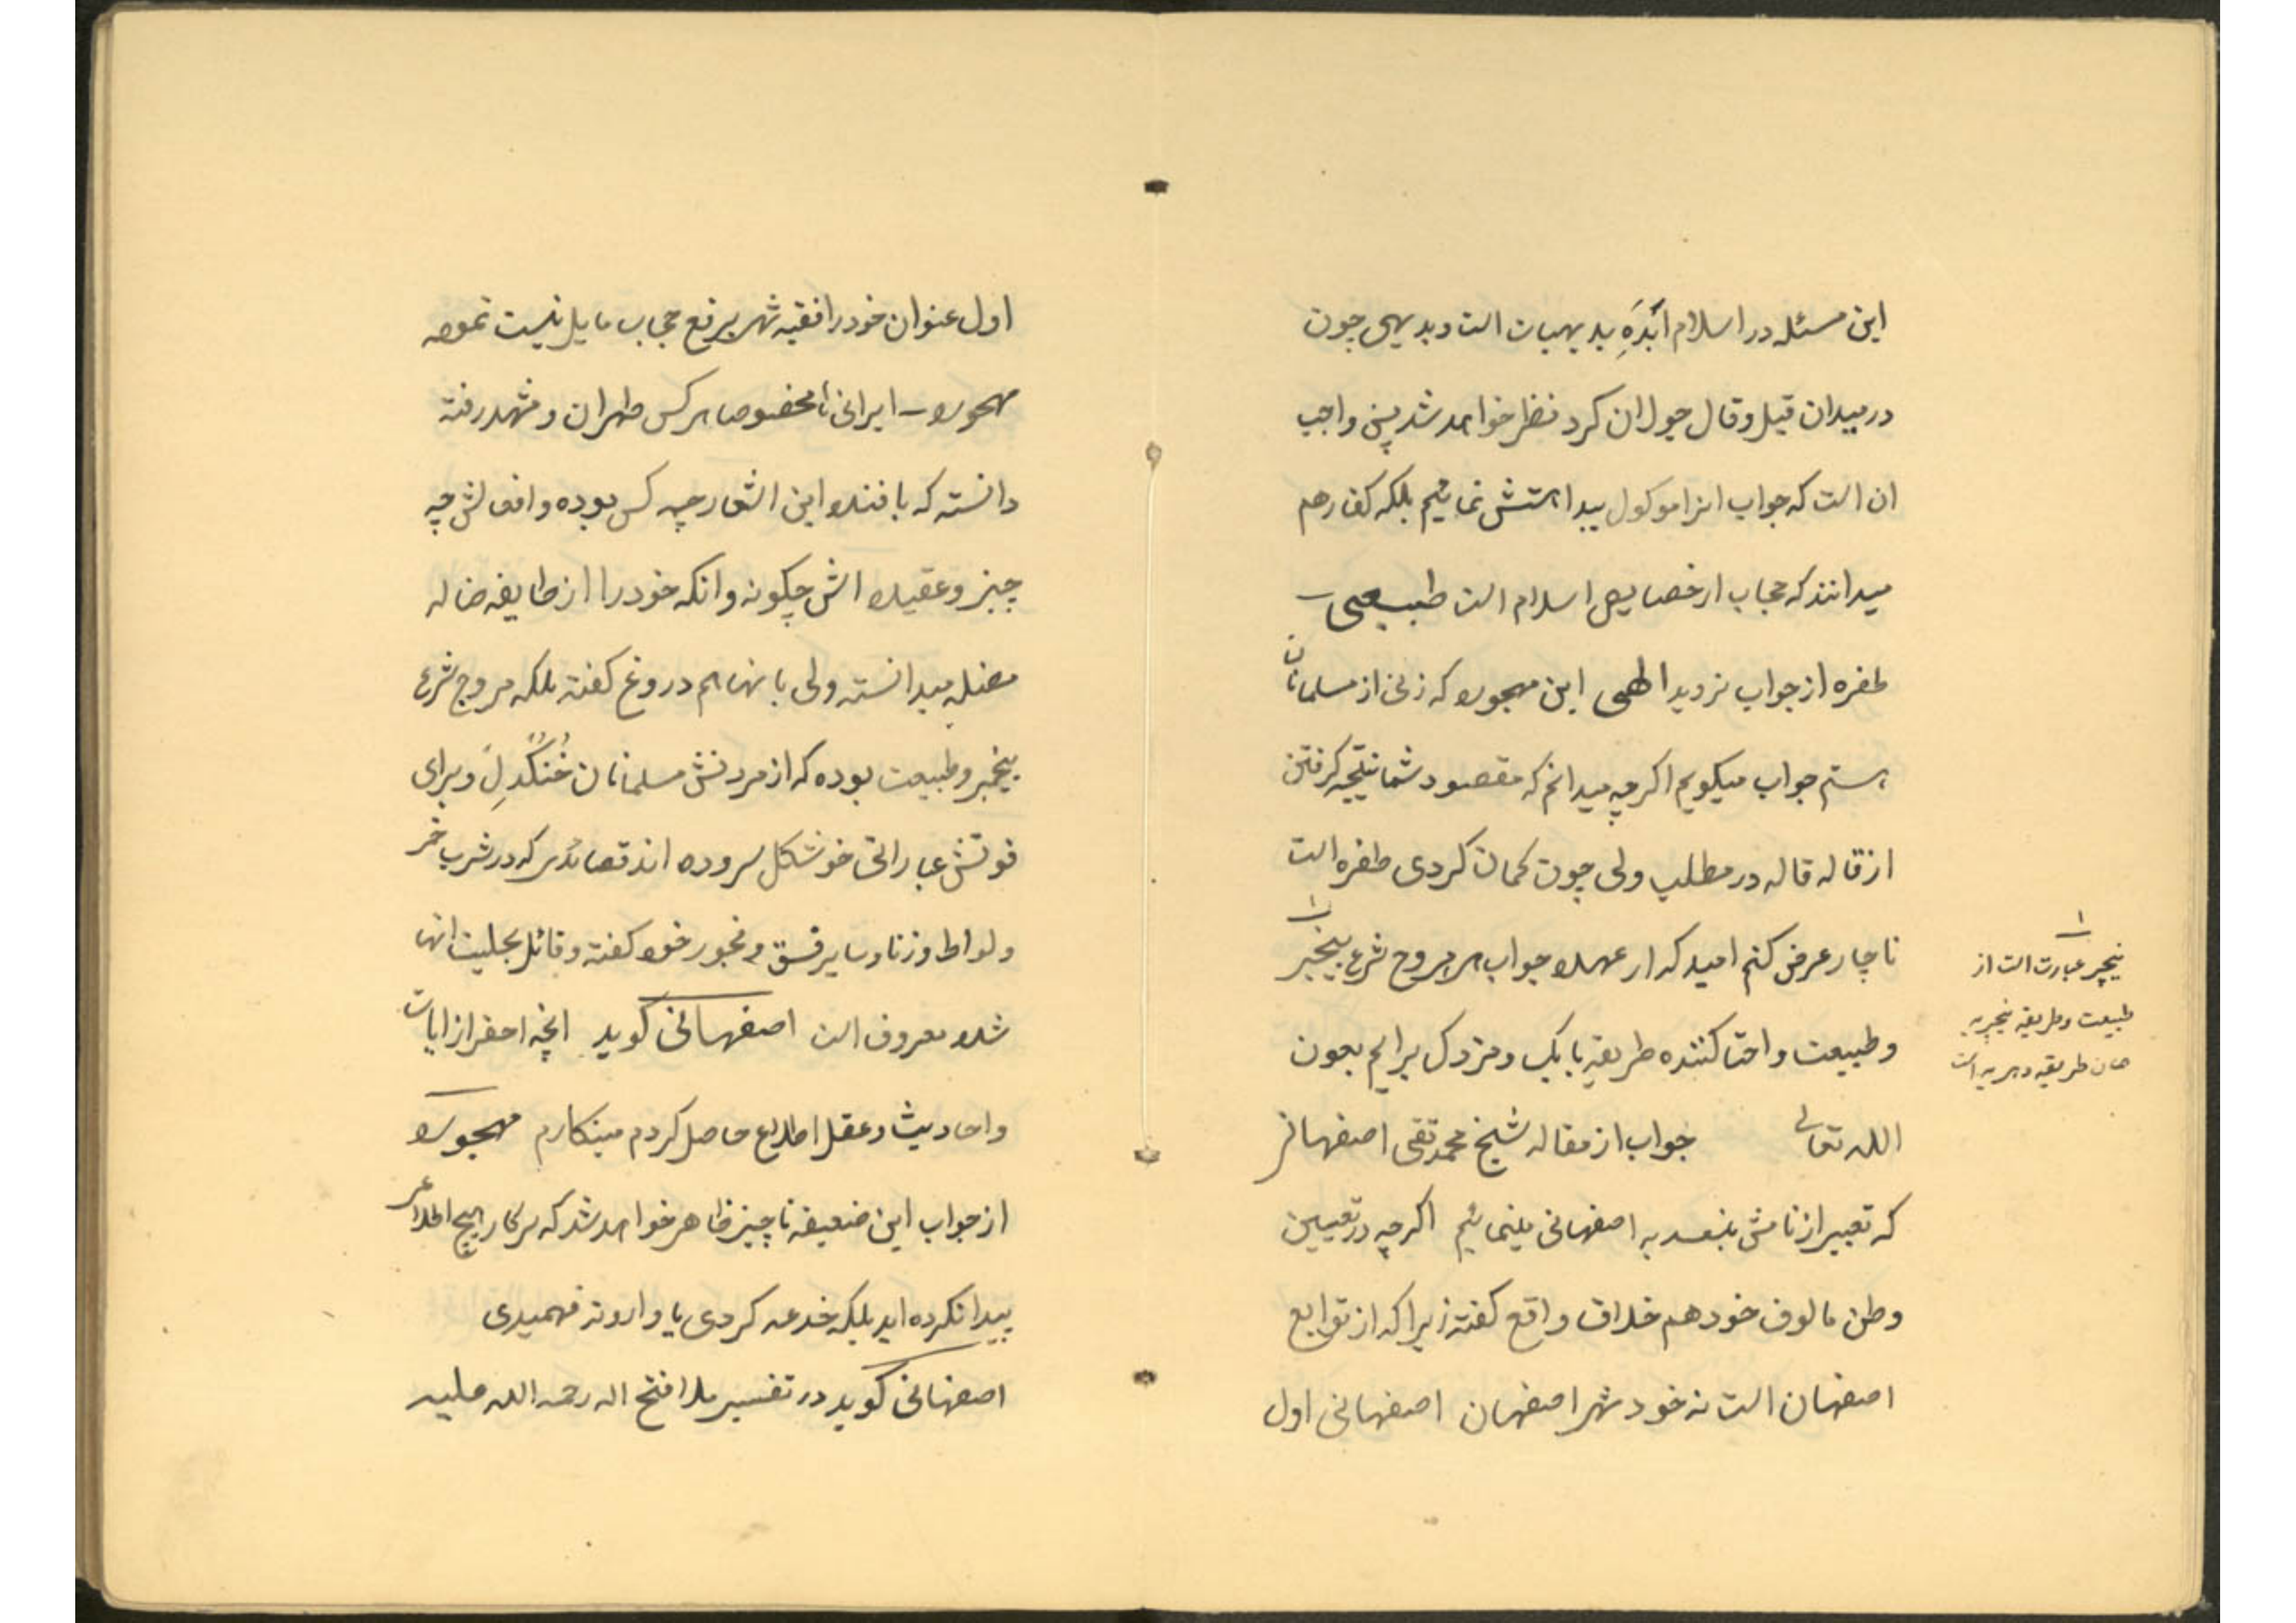 این مسئله در اسلام اَبْدَهِ بدیهیات است و بدیهی چون
در میدان قیل و قال جولان کرد نظر خواهد شد پس واجب
ان است که جواب انرا موکول ببداهتش نمائیم بلکه کفار هم
میدانند که حجاب از خصایص اسلام است طبیعی
طفره از جواب نزوید الهی این مهجوره که زنی از مسلمانان
هستم جواب میکویم اکرچه میدانم که مقصود شما نتیجه کرفتن
از قاله قاله در مطلب ولی چون کمان کردی طفره است
ناچار عرض کنم امید که از عهده جواب هر مروج شرع نیچر
و طبیعت و احیا کننده طریقه بابک و مزدک برایم بعون
الله تعالی جواب از مقاله شیخ محمد تقی اصفهانی
که تعبیر از نامش ببعد به اصفهانی مینمائیم اکرچه در تعیین
وطن مالوف خود هم خلاف واقع کفته زیرا که از توابع
اصفهان است نه خود شهر اصفهان اصفهانی اول
۱
نیچر عبارت است از
طبیعت و طریقه نیچریه
همان طریقه دهریه است
اول عنوان خود را فقیه شهر برفع حجاب مایل نیست نموده
مهجوره ایرانی مخصوصا هرکس طهران و مشهد رفته
دانسته که بافنده این اشعار چه کس بوده و افعالش چه
چیز و عقیده اش چکونه و انکه خود را از طایفه ضاله
مضله میدانسته ولی بانها هم دروغ کفته بلکه مروج شرع
نیچر و طبیعت بوده که از مردنش مسلمانان خُنُک دلِ و برای
فوتش عباراتی خوشکل سروده اند قصائدی که در شرب خمر
و لواط و زنا و سایر فسق و فجور خود کفته و قائل بحلیت انها
شده معروف است اصفهانی کوید انچه احقر از ایات
و احادیث و عقل اطلاع حاصل کردم مینکارم مهجوره
از جواب این ضعیفه ناچیز ظاهر خواهد شد که سرکار هیچ اطلاعی
پیدا نکرده اید بلکه خدعه کردی یا وارونه فهمیدی
اصفهانی کوید در تفسیر ملا فتح اله رحمه الله علیه